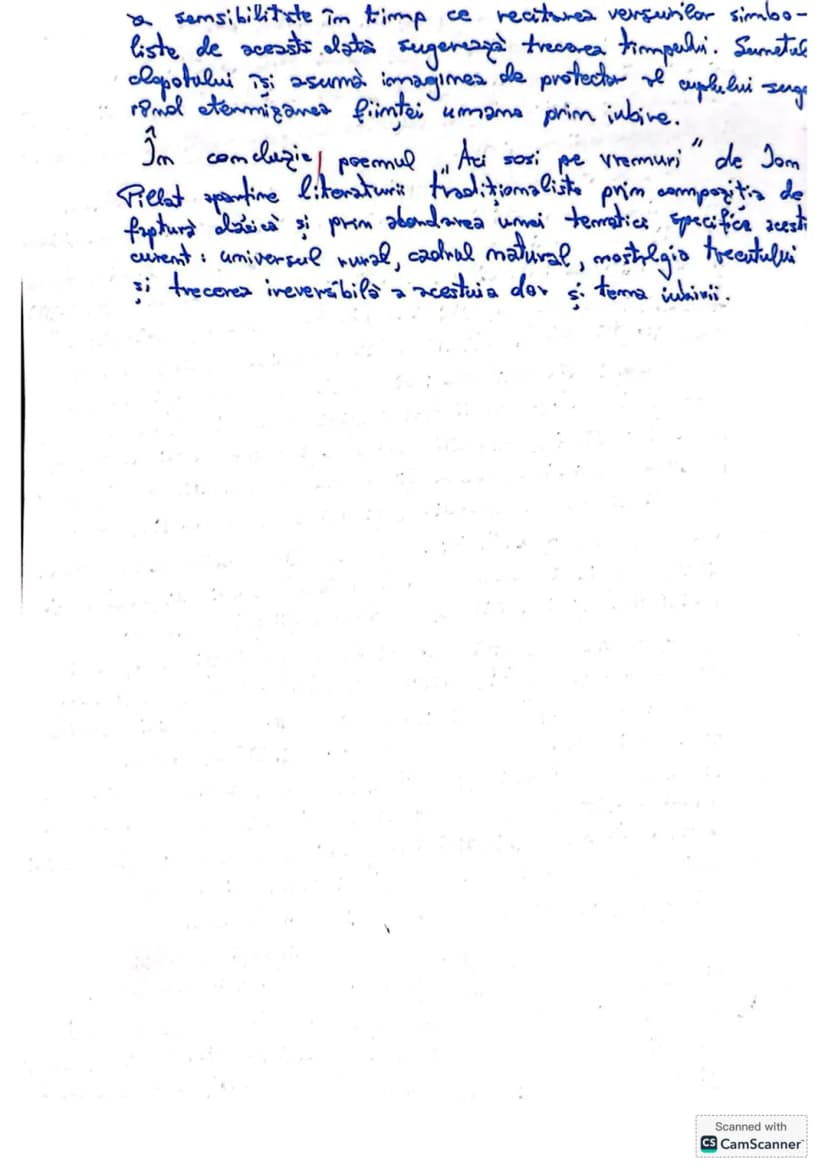 a sensibilitate în timp ce recitarea versurilor simbo-
liste de această dată sugerează trecerea timpului. Sunetul
clopotului își asumă imaginea de protector al cuplului suge
rând eternizarea ființei umane prin iubire.
În concluzie, poemul „Aci sosi pe vremuri" de Ion
Pillat aparține literaturii tradiționaliste prin compoziția de
factură clasică și prin abordarea unei tematici specifice acest
curent: universul rural, cadrul natural, nostalgia trecutului
și trecerea ireversibilă a acestuia dar și tema iubirii.
Scanned with
CS CamScanner